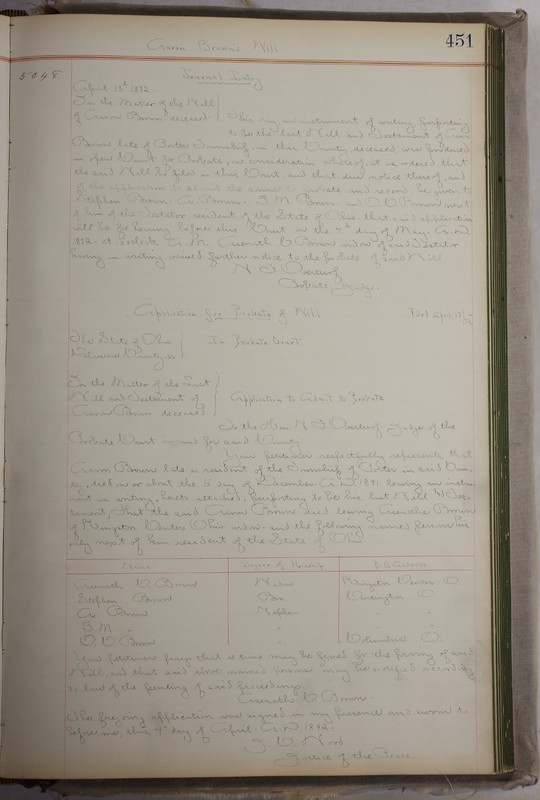 Aaron Brown's Will
451
5048
Journal Entry
April 13th 1892.
In the Matter of the Will
of Aaron Brown deceased } This day an instrument of writing purporting
to be the last Will and Testament of Aaron
Brown late of Porter Township, in this County, deceased was produced
in open Court for Probate, on consideration whereof, it is ordered that
the said Will be filed in this Court, and that due notice thereof, and
of the application to admit the same to probate and record, be given to
Stephen Brown, A. Brown, S. M. Brown and O. C. Brown next
of kin of the testator resident of the State of Ohio. that said application
will be for hearing before this Court on the day of May A.D.
1892. at o'clock A. M. Asenath C Brown widow of said testator
having in writing waived further notice to the probate of said Will
Probate Judge.
Application for Probate of Will
Filed
The State of Ohio
Delaware County ss } In Probate Court
In the Matter of the Last
Will and Testament of
Aaron Brown deceased } Application to Admit to Probate
To the Hon. Judge of the
Probate Court in and for said County
Your petitioner respectfully represents that
Aaron Brown late a resident of the Township of Porter in said Coun-
ty, died on or about the 5 day of December A.D. 1891 leaving an instru-
ment in writing, hereto attached, purporting to be his last Will & Tes-
tament, That the said Aaron Brown died leaving Asenath C Brown
of Ohio widow and the following named persons his
only next of kin resident of the State of Ohio
Name Degree of Kinship P.O. Address
Asenath C Brown Widow O.
Stephen Brown Bro O
A Brown Nephew "
S. M. " " "
O. C Brown " Columbus O.
Your petitioner prays that a time may be fixed for the proving of said
Will, and that said above named persons may be notified according
to law of the pending of said proceedings.
Asenath C Brown.
The foregoing application was signed in my presence and sworn to
before me, this 4 day of April A.D. 1892.
Justice of the Peace